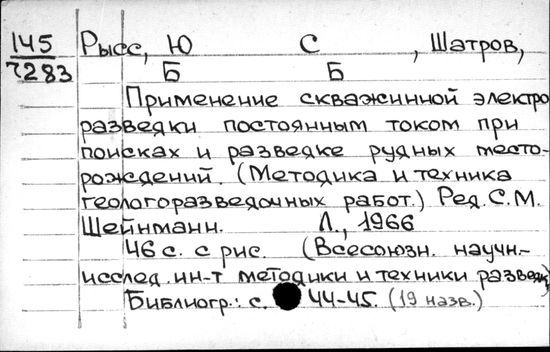 145 Рысс, Ю С , Шатров,
7283 Б Б
Применение скважинной электро
разведки постоянным током при
поисках и разведке рудных место-
рождений. (Методика и техника
геологоразведочных работ.) Ред. С.М.
Шейнманн. Л., 1966
46 с. с рис. (Всесоюзн. научн.-
исслед. ин-т методики и техники разведк)
Библиогр.: с. 44-45. (19 назв.)